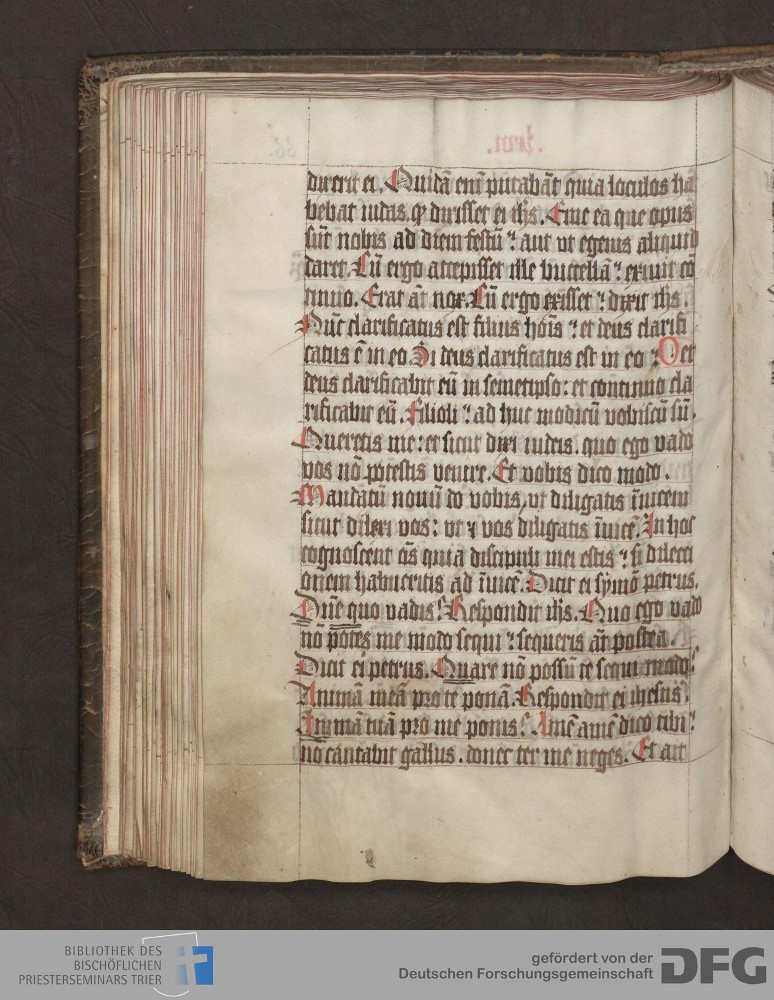 dixerit ei. Quidā eni͛ putabāt quia loculos ha
bebat iudas. qꝫ dixisset ei ih̄s. Eme ea que opus
sūt nobis ad diem festū: aut ut egenis aliquid
daret. Cū ergo accepisset ille buccellā: exiuit cō
tinuo. Erat āt nox. Cū ergo exisset: dixit ih̄s.
Nūc clarificatus est filius hoīs: et deus clarifi
catus ē in eo. Si deus clarificatus est in eo: Et
deus clarificabit eū in semetipso: et continuo cla
rificabit eū. Filioli: ad huc modicū vobiscū sū.
Queretis me: et sicut dixi iudeis. quo ego vado
vos nō potestis venire. Et vobis dico modo.
Mandatū nouū do vobis, ut diligatis īuicem
sicut dilexi vos: ut ⁊ vos diligatis īuicē. In hoc
cognoscent oēs quia discipuli mei estis: si dilecti
onem habueritis ad īuicē. Dicit ei symō petrus.
Dn̄e quo vadis? Respondit ih̄s. Quo ego vado
nō potes me modo sequi: sequeris āt postea.
Dicit ei petrus. Quare nō possū te sequi modo?
Animā meā pro te ponā. Respondit ei ihesus.
Animā tuā pro me ponis? Amē amē dico tibi:
nō cantabit gallus. donec ter me neges. Et ait
BIBLIOTHEK DES
BISCHÖFLICHEN
PRIESTERSEMINARS TRIER
gefördert von der
Deutschen Forschungsgemeinschaft
DFG